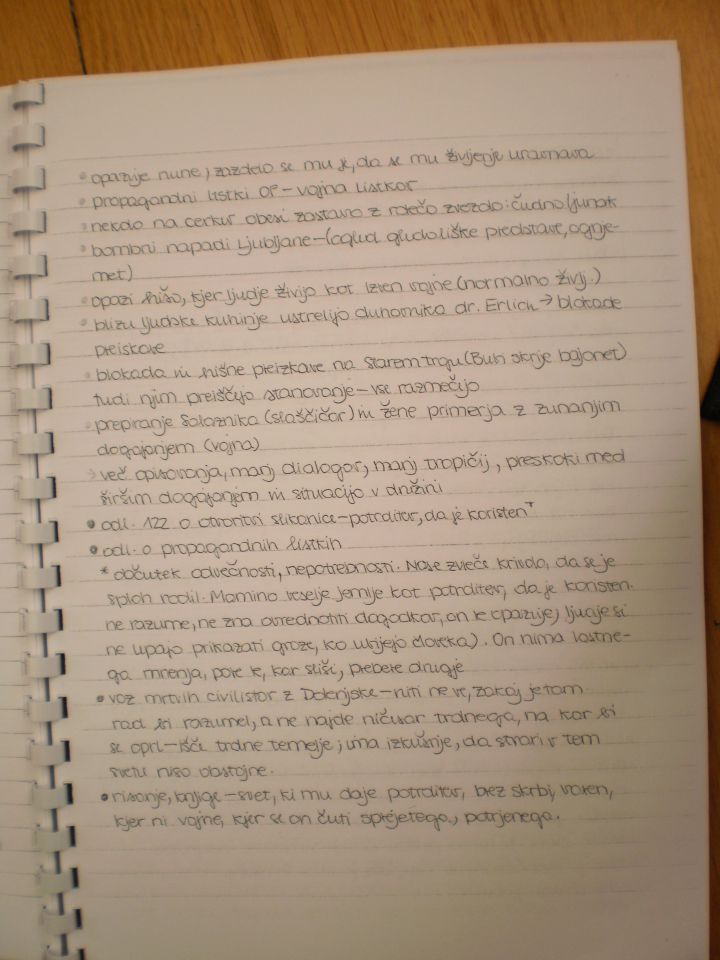 • opazuje nune, zazdelo se mu je, da se mu življenje uravnava
• propagandni listki OF - vojna listkov
• nekdo na cerkev obesi zastavo z rdečo zvezdo: čudno ljunak
• bombni napadi Ljubljane - (ogled gledališke predstave, ognje-
met)
• opazi hišo, kjer ljudje živijo kot izven vojne (normalno življ.)
• blizu ljudske kuhinje ustrelijo duhovnika dr. Erlich → blokade
preiskave
• blokada in hišne preizkave na starem trgu (Buh skrije bajonet)
tudi njim preiščijo stanovanje - vse razmečijo
• prepiranje Salaznika (slaščičar) in žene primerja z zunanjim
dogajanjem (vojna)
→ več opisovanja, manj dialogov, manj tropičij, preskoki med
širšim dogajanjem in situacijo v družini
• odl. 122 o otvoritvi slikanice - potrditev, da je koristen*
• odl. o propagandnih listkih
* občutek odvečnosti, nepotrebnosti. Nase zveče krivdo, da se je
sploh rodil. Mamino veselje jemlje kot potrditev, da je koristen.
ne razume, ne zna ovrednotiti dogodkov, on le opazuje, ljudje si
ne upajo prikazati groze, ko ubijejo človeka). On nima lastne-
ga mnenja, pove le, kar sliši, prebere drugje
• voz mrtvih civilistov z Dolenjske - niti ne ve, zakaj je tam
rad bi razumel, a ne najde ničesar trdnega, na kar bi
se oprl - išče trdne temelje; ima izkušnje, da stvari v tem
svetu niso obstojne.
• risanje, knjige - svet, ki mu daje potrditev, brez skrbi, varen,
kjer ni vojne, kjer se on čuti sprejetega, potrjenega.